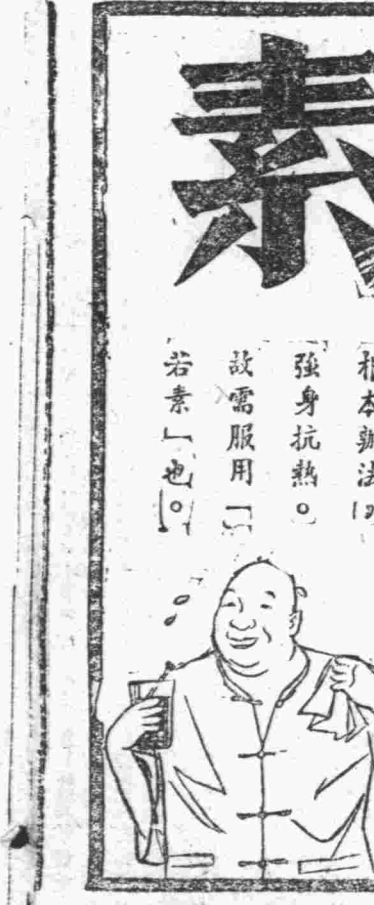 素
根本辦法
強身抗熱。
故需服用「
若素」也。